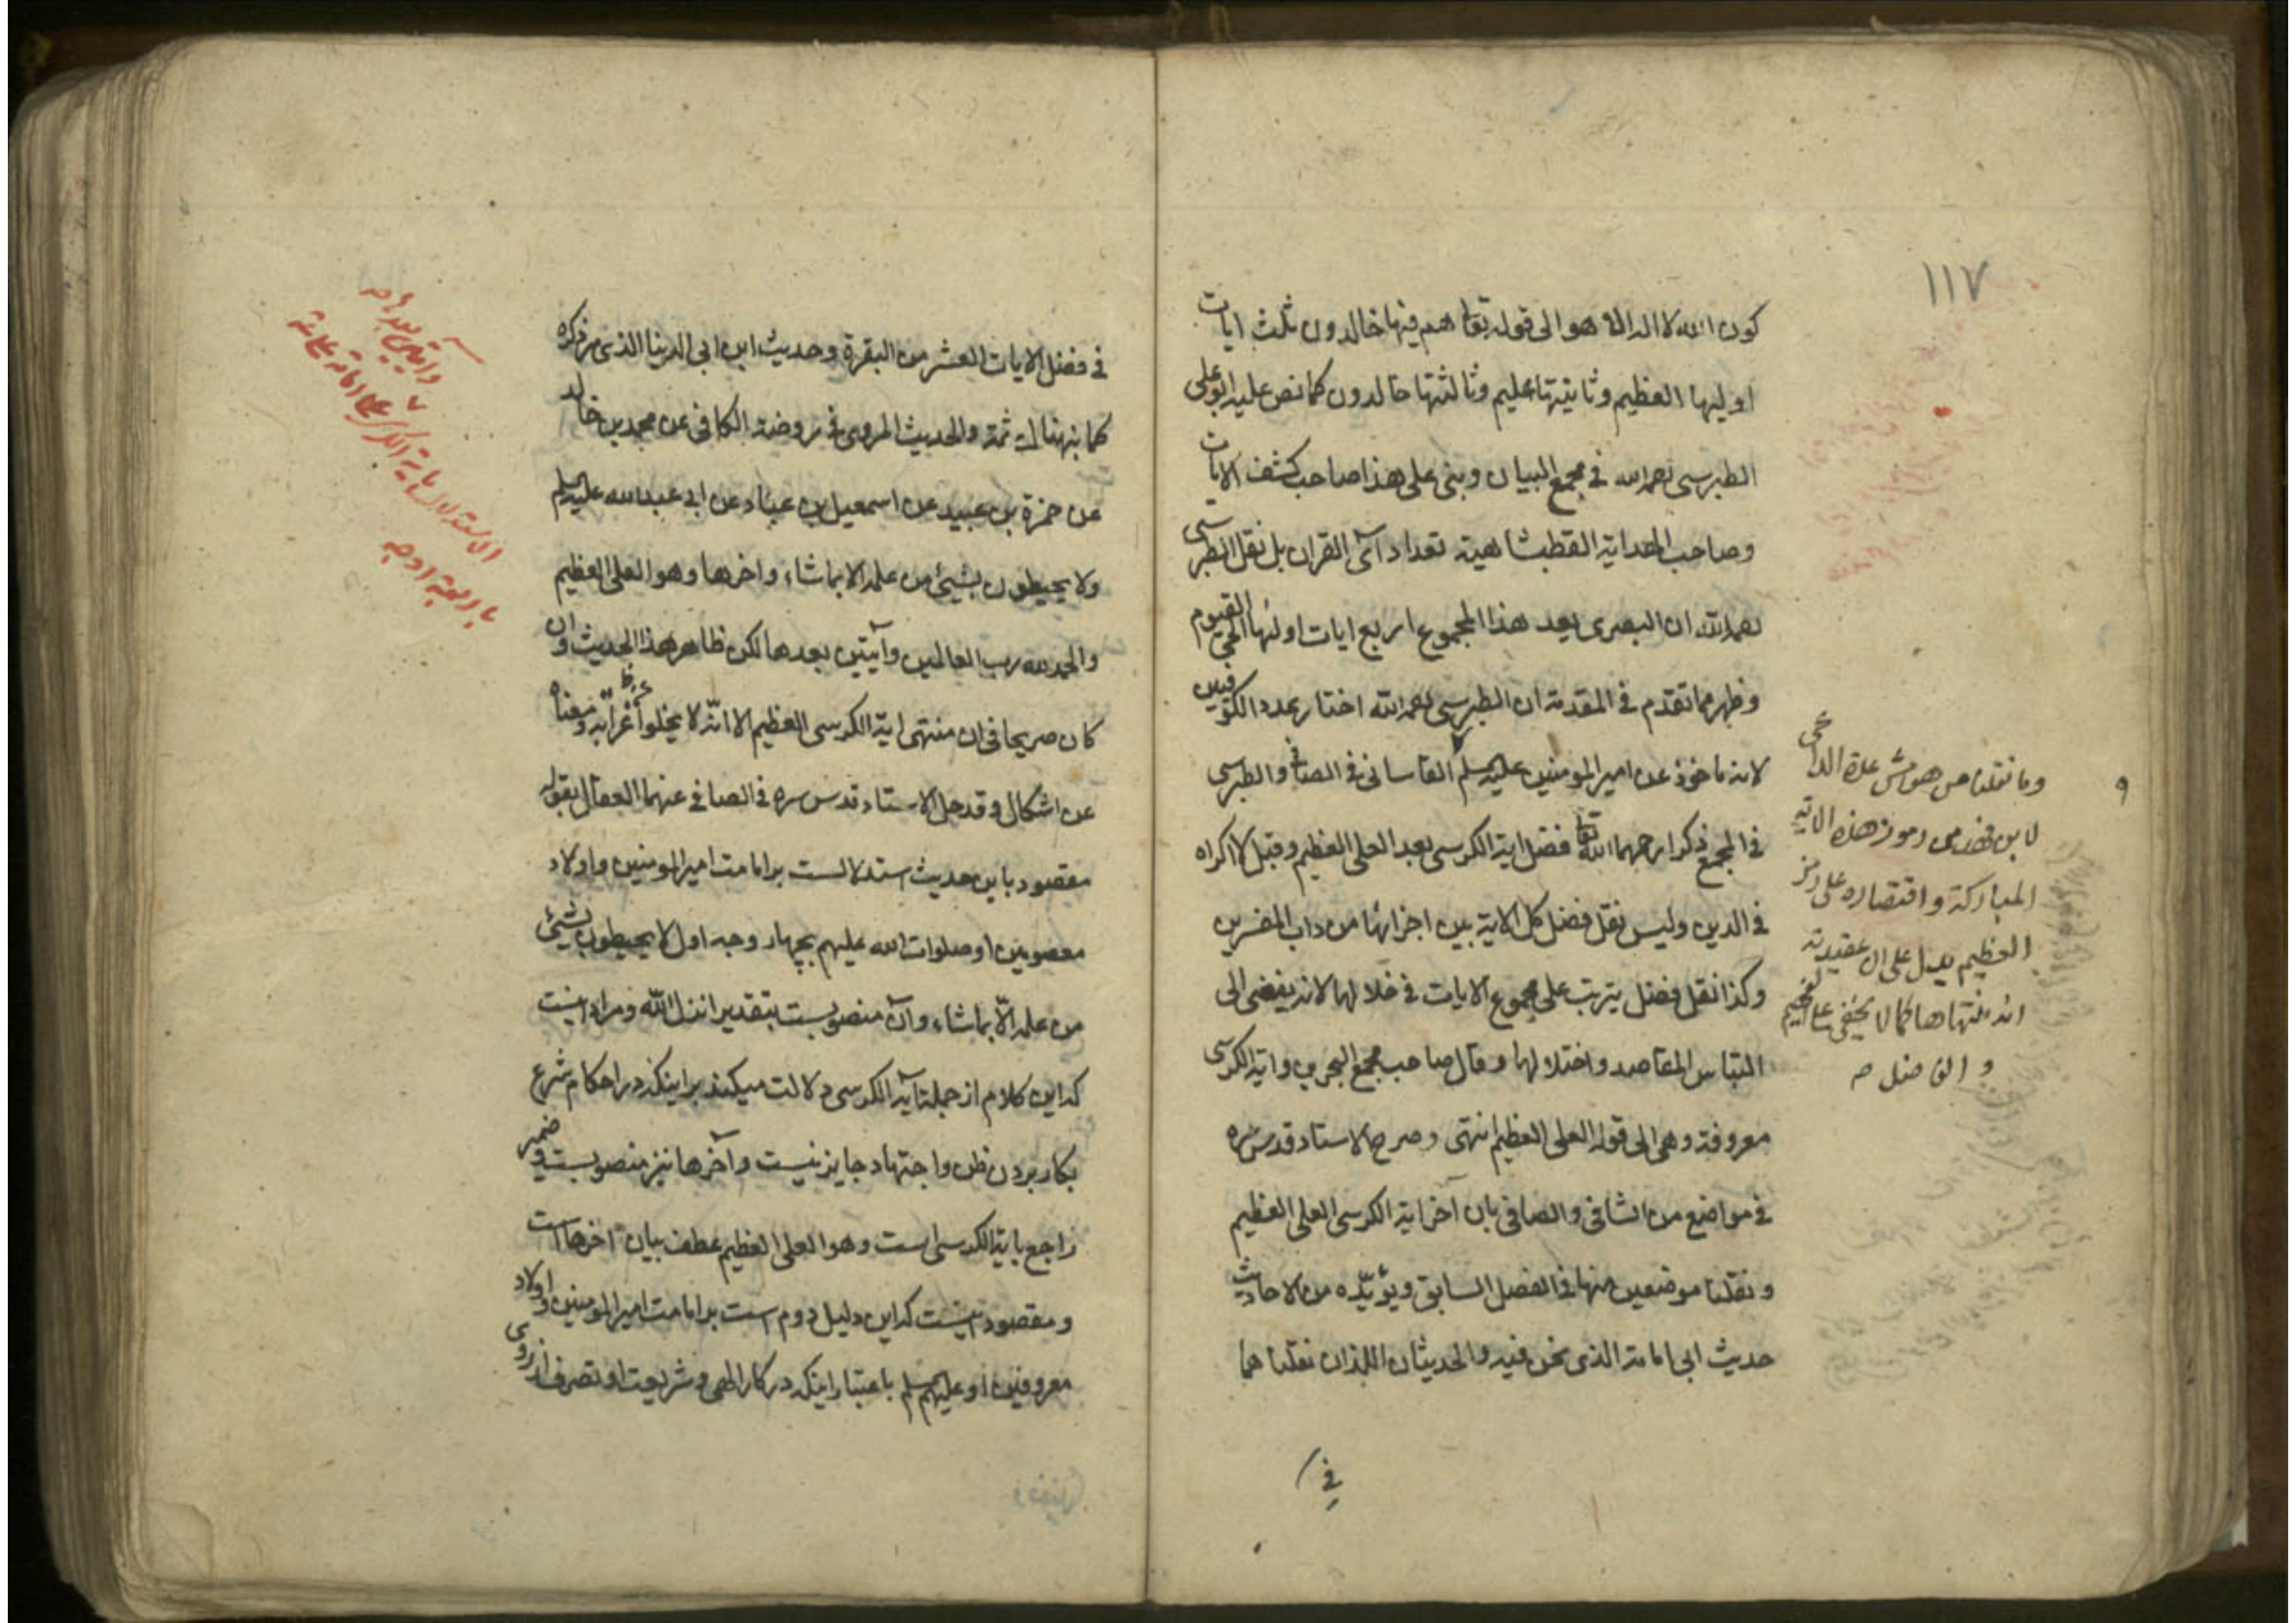 ١١٧
كون الله لا اله الا هو الى قوله تعا هم فيها خالدون ثلث ايات
اوليها العظيم وثانيتها عليم وثالثتها خالدون كما نص عليه ابو على
الطبرسى رحمه الله فى مجمع البيان وبنى على هذا صاحب كشف الايات
وصاحب الهداية القطبشاهية تعداد آى القران بل نقل الطبرسى
رحمه الله ان البصرى يعد هذا المجموع اربع ايات اولها الحى القيوم
وظهر مما تقدم فى المقدمة ان الطبرسى رحمه الله اختار عدد الكوفيين
لانه ماخوذ عن امير المومنين عليه السلم القاسانى فى الصافى والطبرسى
فى المجمع ذكرا رحمهما الله تعا فضل اية الكرسى بعد العلى العظيم وقبل لا اكراه
فى الدين وليس نقل فضل كل الاية بين اجزائها من داب المفسرين
وكذا نقل فضل يترتب على مجموع الايات فى خلالها لانه يفضى الى
التباس المقاصد واختلالها وقال صاحب مجمع البحرين واية الكرسى
معروفة وهى الى قوله العلى العظيم انتهى وصرح الاستاد قدس سره
فى مواضع من الشافى والصافى بان آخر اية الكرسى العلى العظيم
ونقلنا موضعين منها فى الفصل السابق ويؤيّده من الاحاديث
حديث ابى امامة الذى نحن فيه والحديثان اللذان نقلناهما
فى
وما نقلنا من هوامش عدة الداعى
لابن فهد من رموز هذه الاية
المباركة واقتصاره على رمز
العظيم يدل على ان عقيدته
انه منتهاها كما لا يخفى على الفهيم
والفاضل صه
فى فضل الايات العشر من البقرة وحديث ابن ابى الدنيا الذى مر ذكره
كما نبهنا ثمة والحديث المروى فى روضة الكافى عن محمد بن خالد
عن حمزة بن عبيد عن اسمعيل بن عباد عن ابى عبد الله عليه السلم
ولا يحيطون بشيئ من علمه الا بما شاء واخرها وهو العلى العظيم
والحمد لله رب العالمين وآيتين بعدها لكن ظاهر هذا الحديث وان
كان صريحا فى ان منتهى اية الكرسى العظيم الا انّه لا يخلو اعرابه ومعناه
عن اشكال وقد حل الاستاد قدس سره فى الصافى عنهما العقال بقوله
مقصود باين حديث استدلالست بر امامت امير المومنين واولاد
معصومين او صلوات الله عليهم بچهار وجه اول لا يحيطون بشيئ
من علمه الّا بما شاء وآن منصوبست بتقدير انزل اللّه ومراد اينست
كه اين كلام از جمله آية الكرسى دلالت ميكند بر اينكه در احكام شرع
بكار بردن ظن واجتهاد جايز نيست وآخرها نيز منصوبست وضمير
راجع باية الكرسى است وهو العلى العظيم عطف بيان آخرها است
ومقصود اينست كه اين دليل دوم است بر امامت امير المومنين واولاد
معروفين او عليهم السلم باعتبار اينكه در كار الهى وشريعت او تصرف از روى
الاستدلال باية الكرسى على امامة
وآيتين بعدها صه
باربعة اوجه